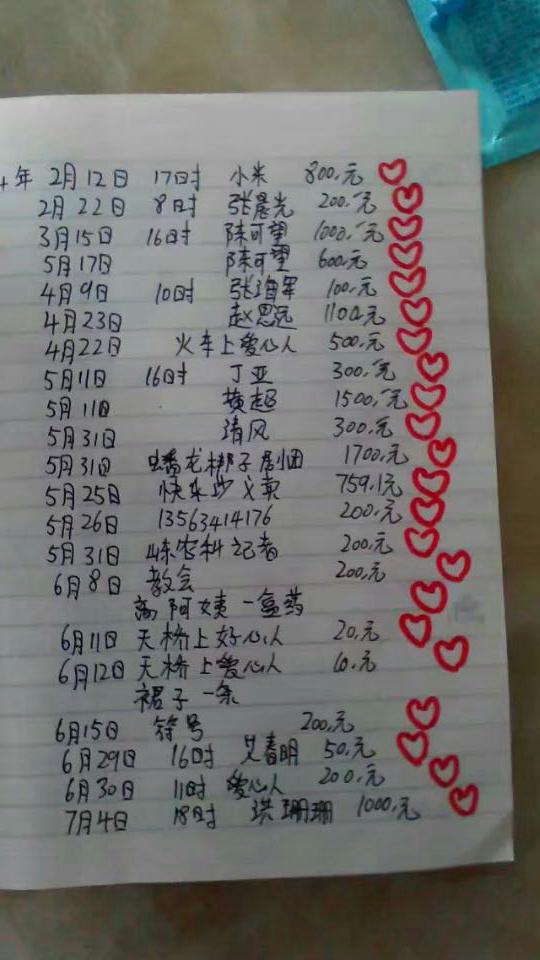 4年 2月12日 17时 小米 800.元
2月22日 8时 张晨光 200.元
3月15日 16时 陈可望 1000.元
5月17日 陈可望 600.元
4月9日 10时 张海军 100.元
4月23日 赵思远 1100.元
4月22日 火车上爱心人 500.元
5月11日 16时 丁亚 300.元
5月11日 黄超 1500.元
5月31日 清风 300.元
5月31日 蟠龙梆子剧团 1700.元
5月25日 快乐沙义卖 759.1元
5月26日 13563414176 200.元
5月31日 山东农科记者 200.元
6月8日 教会 200.元
阿姨一盒药
6月11日 天桥上好心人 20.元
6月12日 天桥上爱心人 10.元
裙子一条
6月15日 符号 200.元
6月29日 16时 艾春明 50.元
6月30日 11时 爱心人 200.元
7月4日 18时 洪珊珊 1000.元